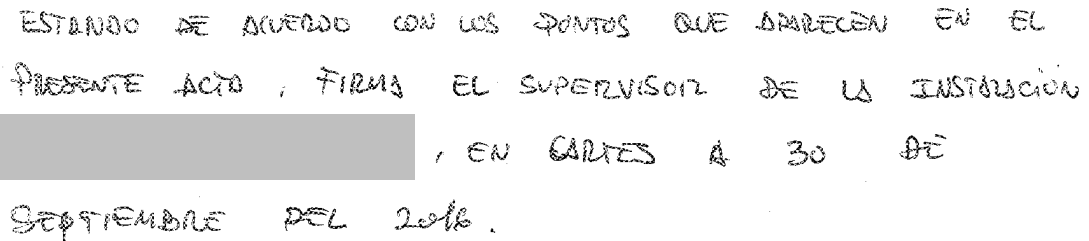 ESTANDO DE ACUERDO CON LOS PUNTOS QUE APARECEN EN EL
PRESENTE ACTO, FIRMA EL SUPERVISOR DE LA INSTALACIÓN
, EN CARTES A 30 DE
SEPTIEMBRE DEL 2016.